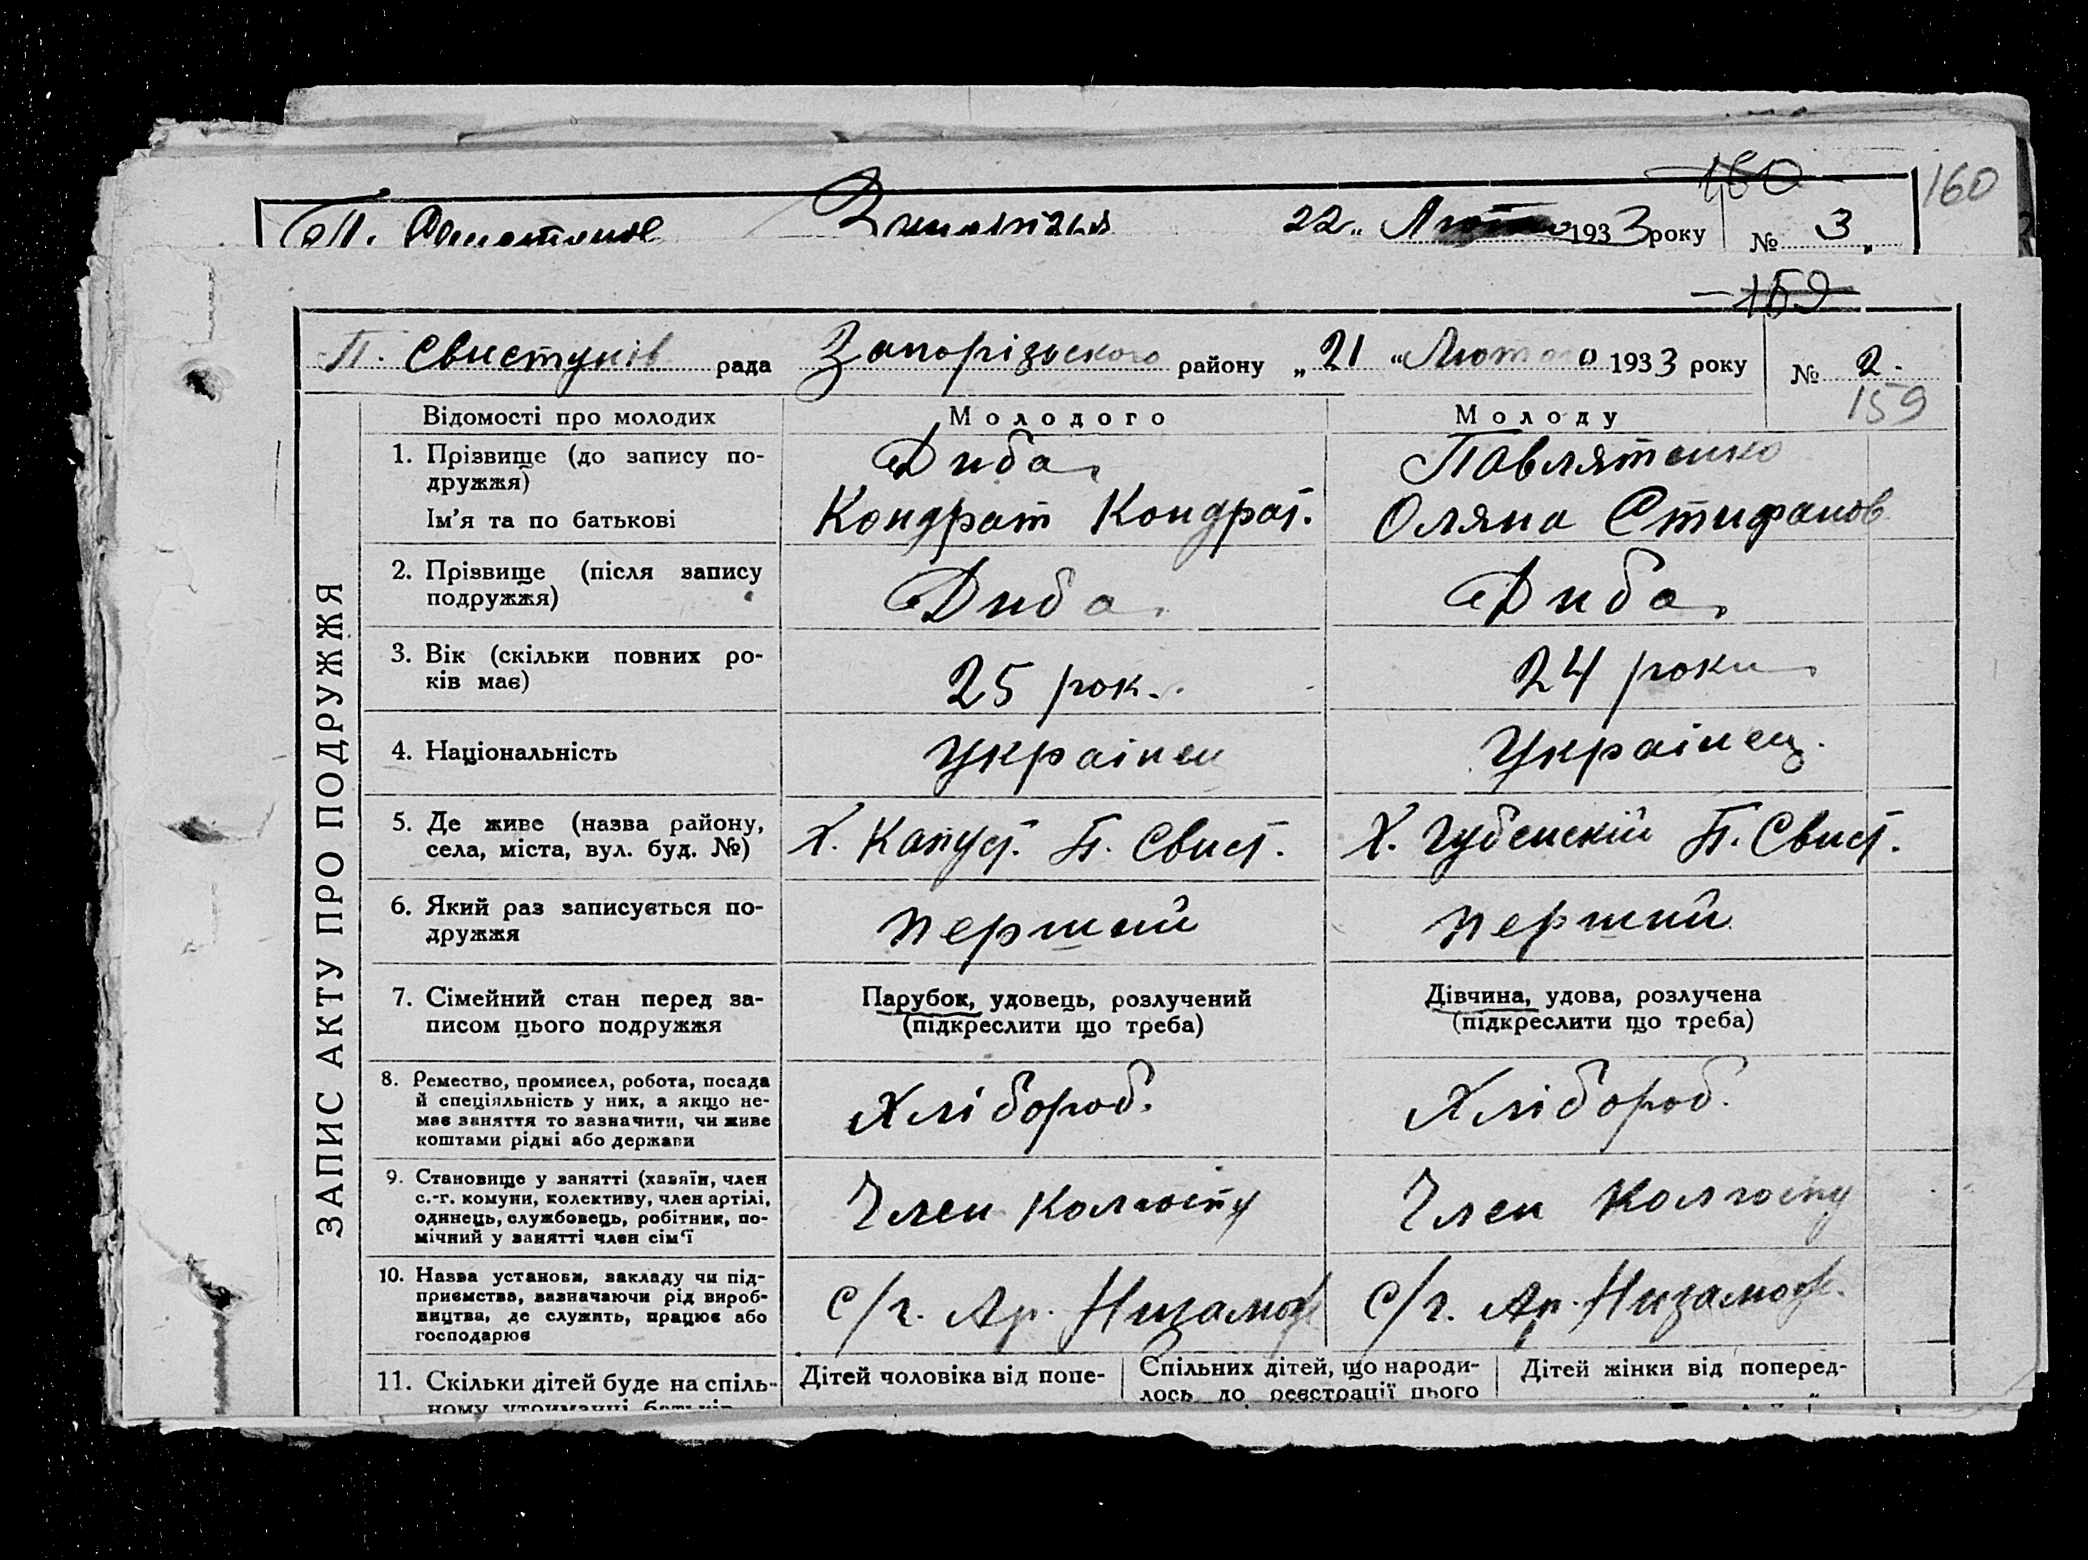 160
160
22 „ 1933 року № 3
159
П. Свистунів рада Запорізьского району „ 21 “ Лютого 1933 року № 2.
159
ЗАПИС АКТУ ПРО ПОДРУЖЖЯ
Відомості про молодих Молодого Молоду
1. Прізвище (до запису по-
дружжя)
Диба Павлятенко
Ім'я та по батькові Кондрат Кондрат. Оляна Стифанов
2. Прізвище (після запису
подружжя)
Диба Диба
3. Вік (скільки повних ро-
ків має)
25 рок. 24 роки
4. Національність Украінец Украінец.
5. Де живе (назва району,
села, міста, вул. буд. №)
Х. Капуст. П. Свист. Х. Губенскій П. Свист.
6. Який раз записується по-
дружжя
перший перший
7. Сімейний стан перед за-
писом цього подружжя
Парубок, удовець, розлучений
(підкреслити що треба)
Дівчина, удова, розлучена
(підкреслити що треба)
8. Ремество, промисел, робота, посада
й спеціяльність у них, а якщо не-
має заняття то зазначити, чи живе
коштами рідні або держави
Хлібороб. Хлібороб.
9. Становище у занятті (хазяїн, член
с.-г. комуни, колективу, член артілі,
одинець, службовець, робітник, по-
мічний у занятті член сім'ї
Член колгоспу Член колгоспу
10. Назва установи, закладу чи під-
приємства, зазначаючи рід вироб-
ництва, де служить, працює або
господарює
с/г. Ар. с/г. Ар.
11. Скільки дітей буде на спіль-
ному утриманні
Дітей чоловіка від попе-
Спільних дітей, що народи-
лось до реєстрації цього
Дітей жінки від поперед-